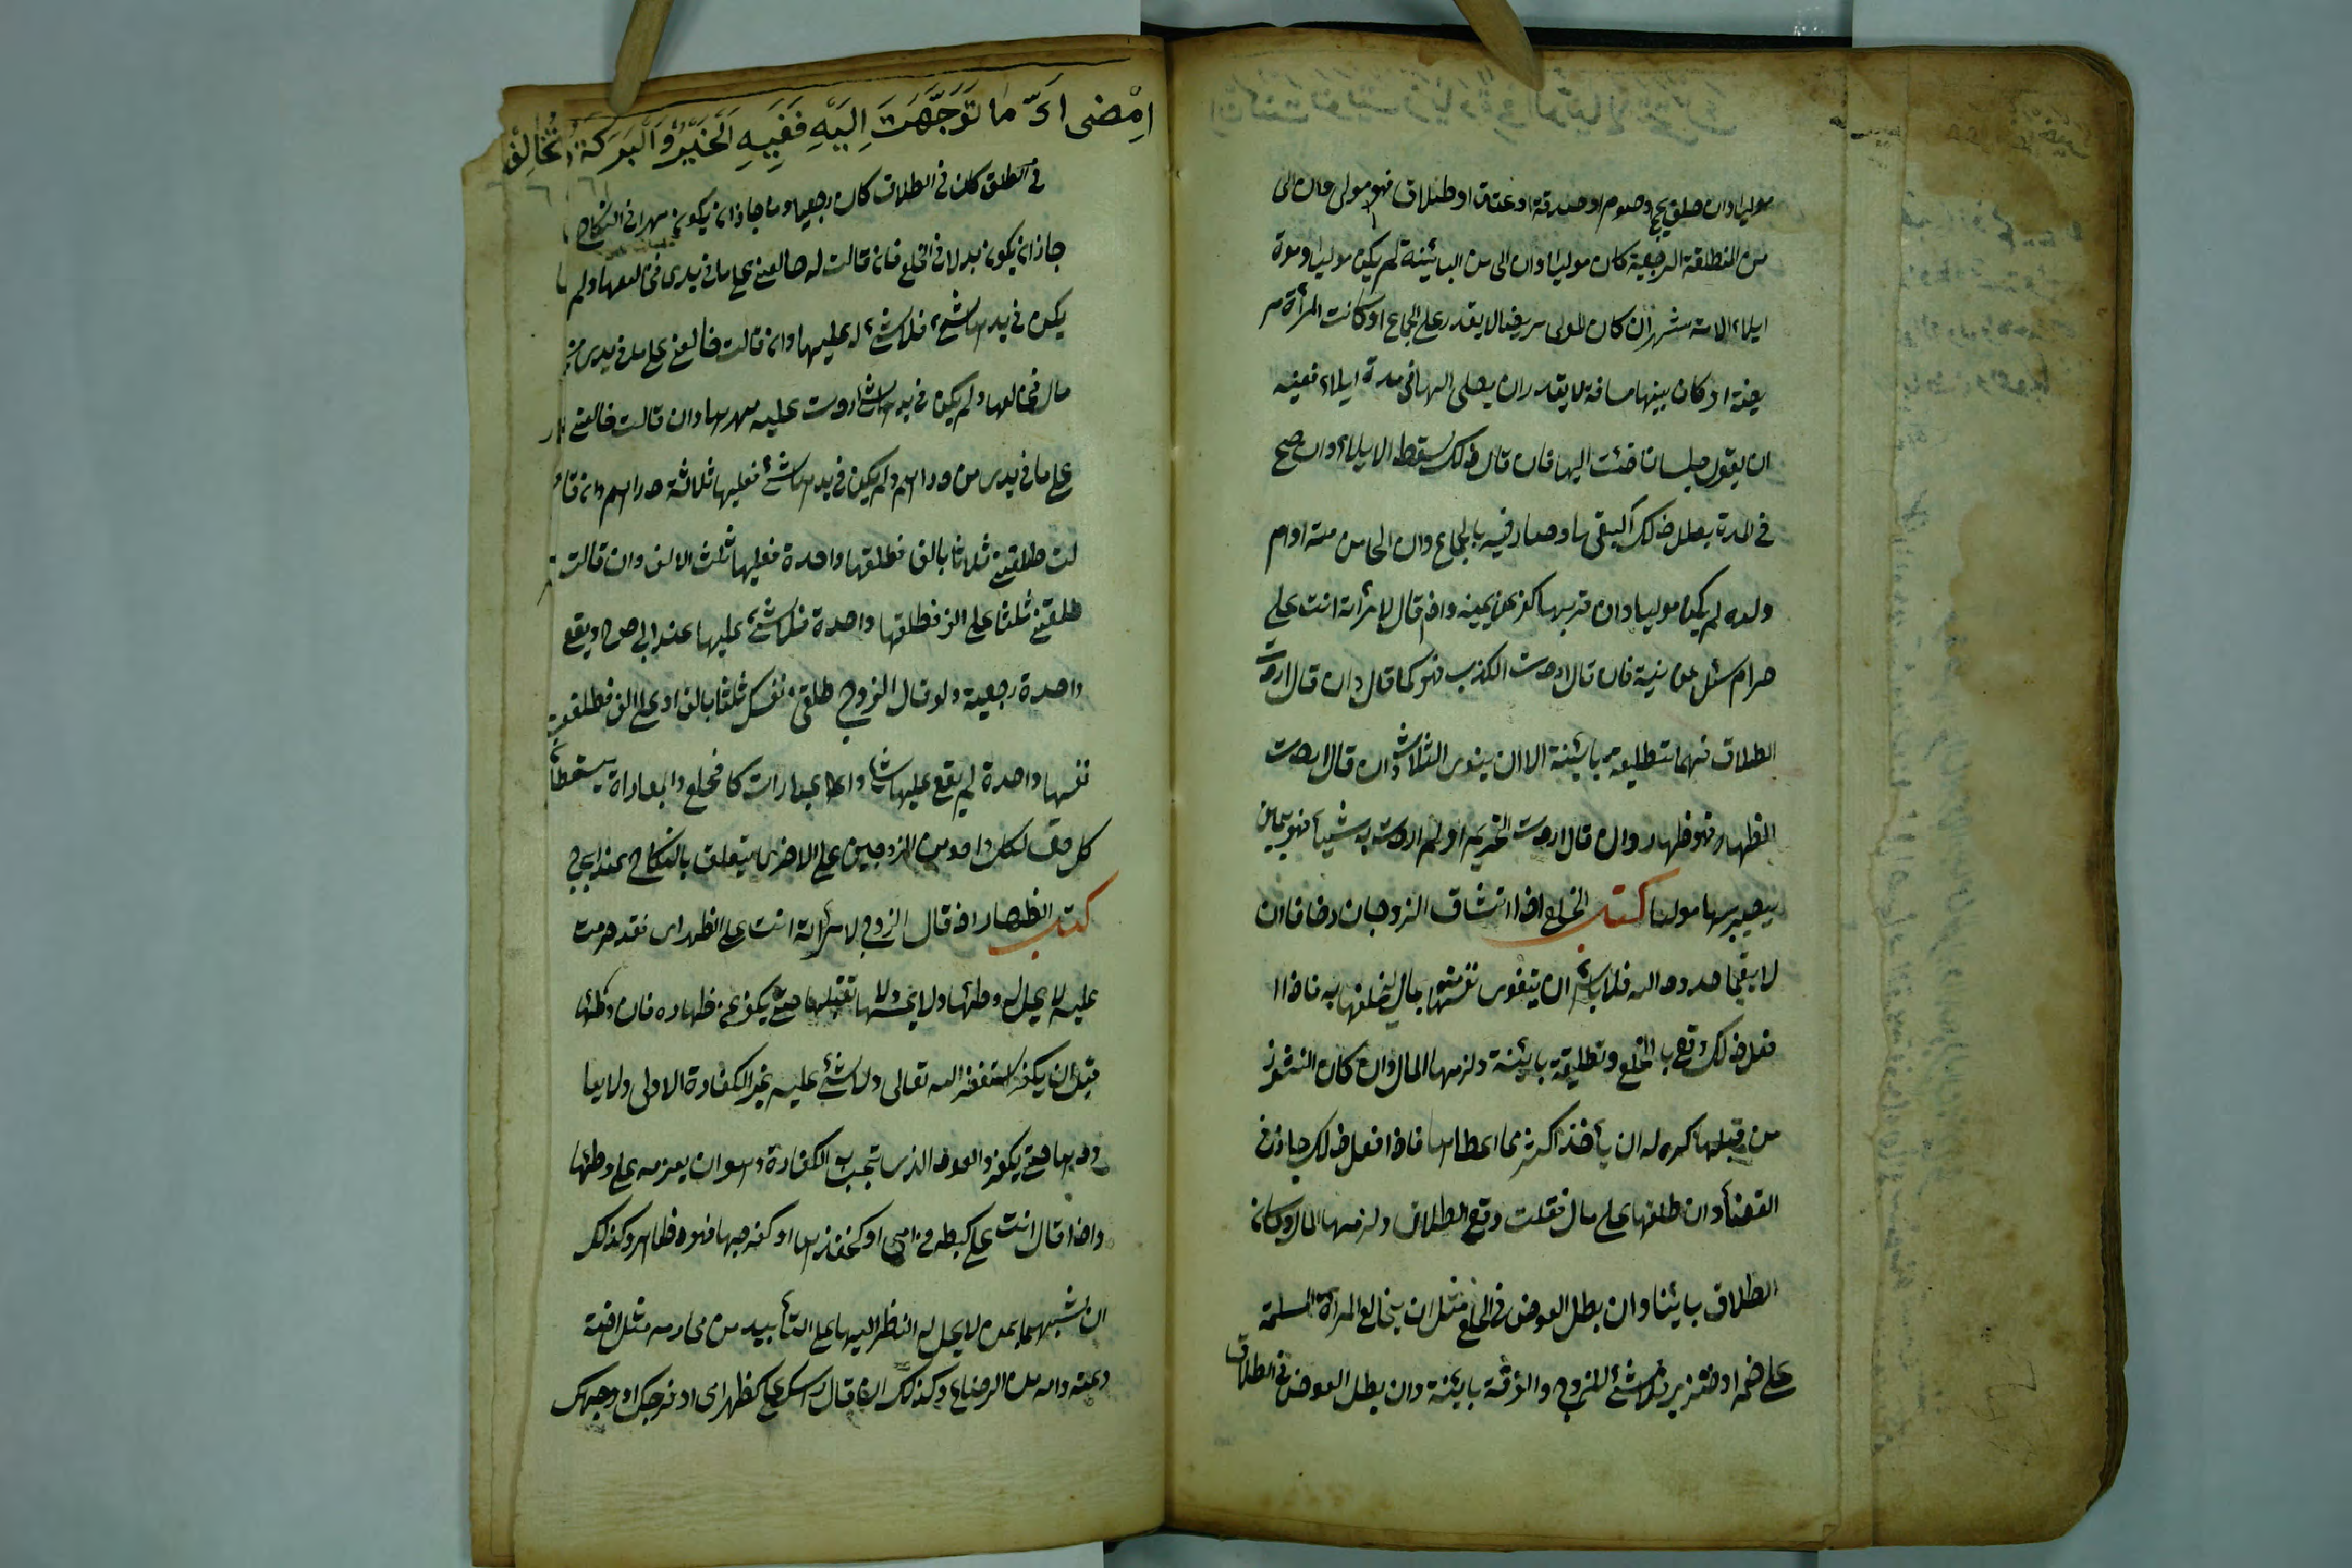 موليا وان حلف بحج وصوم او صدقة او عتق او طلاق فهو مولى وان الى
من المطلقة الرجعية كان موليا وان الى من البائينة لم يكن موليا ومدة
ايلاء الامة شهران كان المولى مريضا لا يقدر على الجماع او كانت المرأة مر
يضة او كان بينهما مسافة لا يقدر ان يصلى اليها فى مدة ايلاء ففيئه
ان يقول بلسانه فئت اليها فان قال ذلك سقط الايلاء وان صح
فى المدة بطل ذلك الفئ وصار فيه بالجماع وان الى من امته او ام
ولده لم يكن موليا وان قربها كفر عن يمينه واذ قال لامرأته انت على
حرام سئل عن نية فان قال اردت الكذب فهو كما قال وان قال اردت
الطلاق فهما تطليقة بائينة الا ان ينوى الثلاث وان قال اردت
الظهار فهو ظهار وان قال اردت التحريم او لم اردت به شيأ فهو يمين
يصير بها موليا كتاب الخلع اذا تشاق الزوجان وخافا ان
لا يقيما حدود الله فلا بأس ان يتفدى نفسها بمال يخلعها به فاذا
فعل ذلك وقع بالخلع وتطليقة بائينة ولزمها المال وان كان النشوز
من قبلها كره له ان يأخذ اكثر مما اعطاها فاذا فعل ذلك جاز فى
القضأ وان طلقها على مال فقلت وقع الطلاق ولزمها المال وكان
الطلاق بائنا وان بطل العوض فى الخلع مثل ان يخالع المرأة المسلمة
على خمر او خنزير فلا شئ للزوج والفرقة بائينة وان بطل العوض فى الطلاق
اِمْضى ما تَوَجَّهَتَ اِلَيْهِ فَفِيهِ اَلْخَيْرُ وَالْبَرَكَة تُخَالِفْ
فى الطلق كان فى الطلاق كان رجعيا وما جاز ان يكون مهرا فى النكاح
جاز ان يكون بدلا فى الخلع فان قالت له خالعنى على ما فى يدى فخالعها ولم
يكن فى يدها شئ فلا شئ له عليها وان قالت خالعنى على ما فى يدى من
مال فخالعها ولم يكن فى يدها شئ ردت عليه مهرها وان قالت خالعنى
على ما فى يدى من دراهم ولم يكن فى يدها شئ فعليها ثلاثة دراهم وان قا
لت طلقنى ثلاثا بالف فطلقها واحدة فعليها ثلث الالف وان قالت
طلقنى ثلثا على الف فطلقها واحدة فلا شئ عليها عند ابى ح ويقع
واحدة رجعية ولو قال الزوج طلقى نفسك ثلثا بالف او على الف فطلقت
نفسها واحدة لم يقع عليها شئ والمبارات كالخلع والمباراة يسقطان
كل حق لكل واحد من الزوجين على الاخر مما يتعلق بالنكاح عند ابى ح
كتاب الظهار اذ قال الزوج لامرأته انت على الظهر امى فقد حرمت
عليه لا يحل له وطئها ولا يمسها ولا تقبيلها حتى يكفر عن ظهاره فان وطئها
قبل ان يكفر استغفر الله تعالى ولا شئ عليه غير الكفارة الاولى ولا يعا
ودها حتى يكفر والعود الذى تجب به الكفارة وهو ان يعزم على وطئها
واذا قال انت على كبطن امى او كفخذها او كفرجها فهو مظاهر وكذلك
ان شبهها بمن لا يحل له النظر اليها على التأبيد من محارمه مثل اخته
وعمته وامه من الرضاع وكذلك ان قال رأسك على كظهر امى او فرجك او وجهك